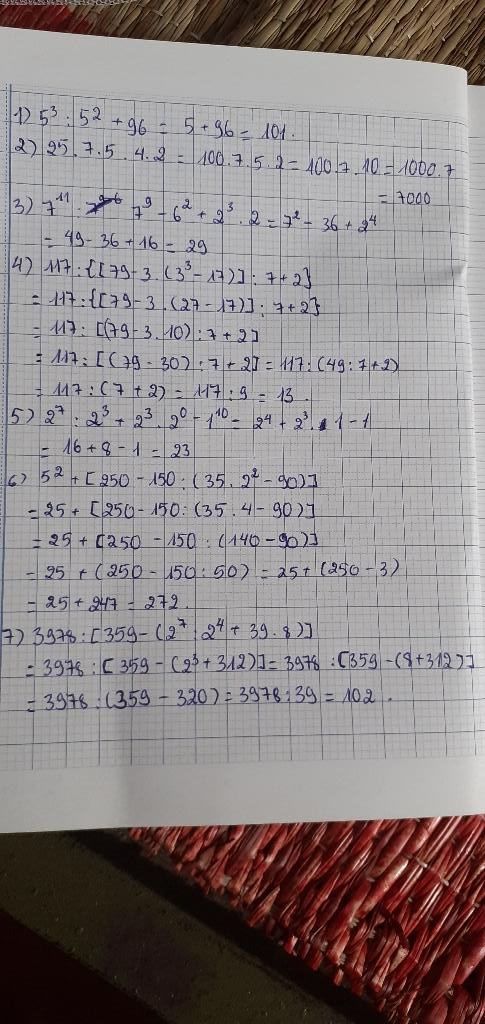 1) 5³ : 5² + 96 = 5 + 96 = 101.
2) 25 . 7 . 5 . 4 . 2 = 100 . 7 . 5 . 2 = 100 . 7 . 10 = 1000 . 7
= 7000
3) 7¹¹ : 7⁹ - 6² + 2³ . 2 = 7² - 36 + 2⁴
= 49 - 36 + 16 = 29
4) 117 : {[79 - 3 . (3³ - 17)] : 7 + 2}
= 117 : {[79 - 3 . (27 - 17)] : 7 + 2}
= 117 : [(79 - 3 . 10) : 7 + 2]
= 117 : [(79 - 30) : 7 + 2] = 117 : (49 : 7 + 2)
= 117 : (7 + 2) = 117 : 9 = 13.
5) 2⁷ : 2³ + 2³ . 2⁰ - 1¹⁰ = 2⁴ + 2³ . 1 - 1
= 16 + 8 - 1 = 23
6) 5² + [250 - 150 : (35 . 2² - 90)]
= 25 + [250 - 150 : (35 . 4 - 90)]
= 25 + [250 - 150 : (140 - 90)]
= 25 + (250 - 150 : 50) = 25 + (250 - 3)
= 25 + 247 = 272.
7) 3978 : [359 - (2⁷ : 2⁴ + 39 . 8)]
= 3978 : [359 - (2³ + 312)] = 3978 : [359 - (8 + 312)]
= 3978 : (359 - 320) = 3978 : 39 = 102.